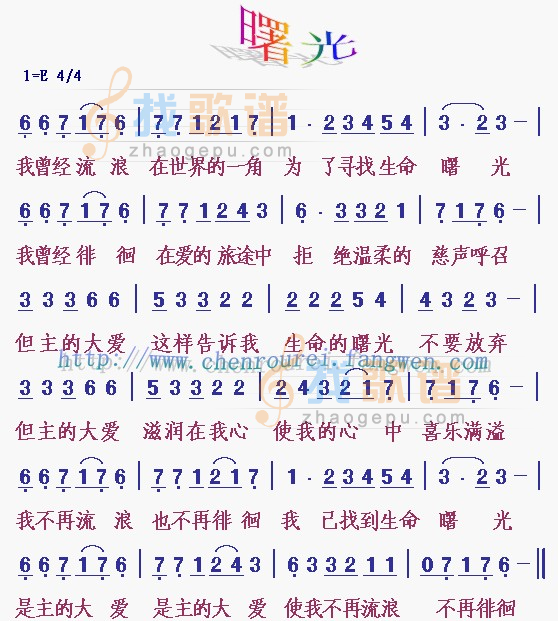 曙光
1=E 4/4
找歌谱
zhaogepu.com
6 6 7 1 7 6 | 7 7 1 2 1 7 | 1 · 2 3 4 5 4 | 3 · 2 3 — |
我曾经 流 浪 在世界的一角 为 了寻找生命 曙 光
6 6 7 1 7 6 | 7 7 1 2 4 3 | 6 · 3 3 2 1 | 7 1 7 6 — |
我曾经 徘 徊 在爱的 旅途中 拒 绝温柔的 慈声呼召
3 3 3 6 6 | 5 3 3 2 2 | 2 2 2 5 4 | 4 3 2 3 — |
但主的大爱 这样告诉我 生命的曙光 不要放弃
http://www.chenrourei.fangwen.com
3 3 3 6 6 | 5 3 3 2 2 | 2 4 3 2 1 7 | 7 1 7 6 — |
找歌谱
zhaogepu.com
但主的大爱 滋润在我心 使我的心 中 喜乐满溢
6 6 7 1 7 6 | 7 7 1 2 1 7 | 1 · 2 3 4 5 4 | 3 · 2 3 — |
我不再流 浪 也不再徘 徊 我 己找到生命 曙 光
6 6 7 1 7 6 | 7 7 1 2 4 3 | 6 3 3 2 1 1 | 0 7 1 7 6 — ‖
是主的大 爱 是主的大 爱 使我不再流浪 不再徘徊